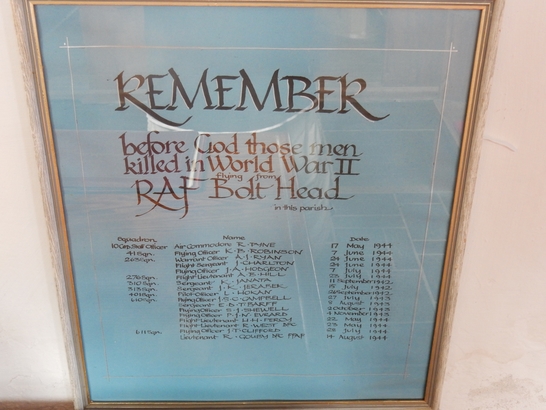 REMEMBER
before God those men
killed in World War II
flying from
RAF Bolt Head
in this parish
Squadron Name Date
10 Grp. Staff Officer Air Commodore R. PYNE 17 May 1944
41 Sqn. Flying Officer K. B. ROBINSON 7 June 1944
263 Sqn. Warrant Officer A. J. RYAN 24 June 1944
Flight Sergeant J. CHARLTON 24 June 1944
Flying Officer J. A. HODGEON 7 July 1944
276 Sqn. Flight Lieutenant A. R. HILL July 1944
310 Sqn. Sergeant K. JANATA 11 September 1942
313 Sqn. Sergeant J. K. JERABEK July 1942
Pilot Officer L. HOKAN September 1942
610 Sqn. Flying Officer S. C. CAMPBELL 27 July 1943
Sergeant E. B. T. BARFF August 1943
Flying Officer S. J. SHEWELL October 1943
Flying Officer F. J. N. EVRARD 4 November 1943
Flight Lieutenant H. H. PERCY 22 May 1944
Flight Lieutenant R. WEST DFC 23 May 1944
611 Sqn. Flying Officer J. T. CLIFFORD July 1944
Lieutenant R. FFAF 14 August 1944